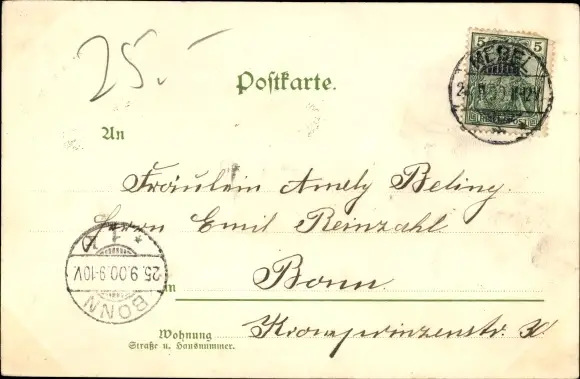 25.-
5 5
WESEL
Postkarte.
An
Fräulein Amely Beling.
Herrn Emil Reinzahl
25.9.00.9-10V.
BONN
in Bonn.
Wohnung
Straße u. Hausnummer.
Kronprinzenstr.